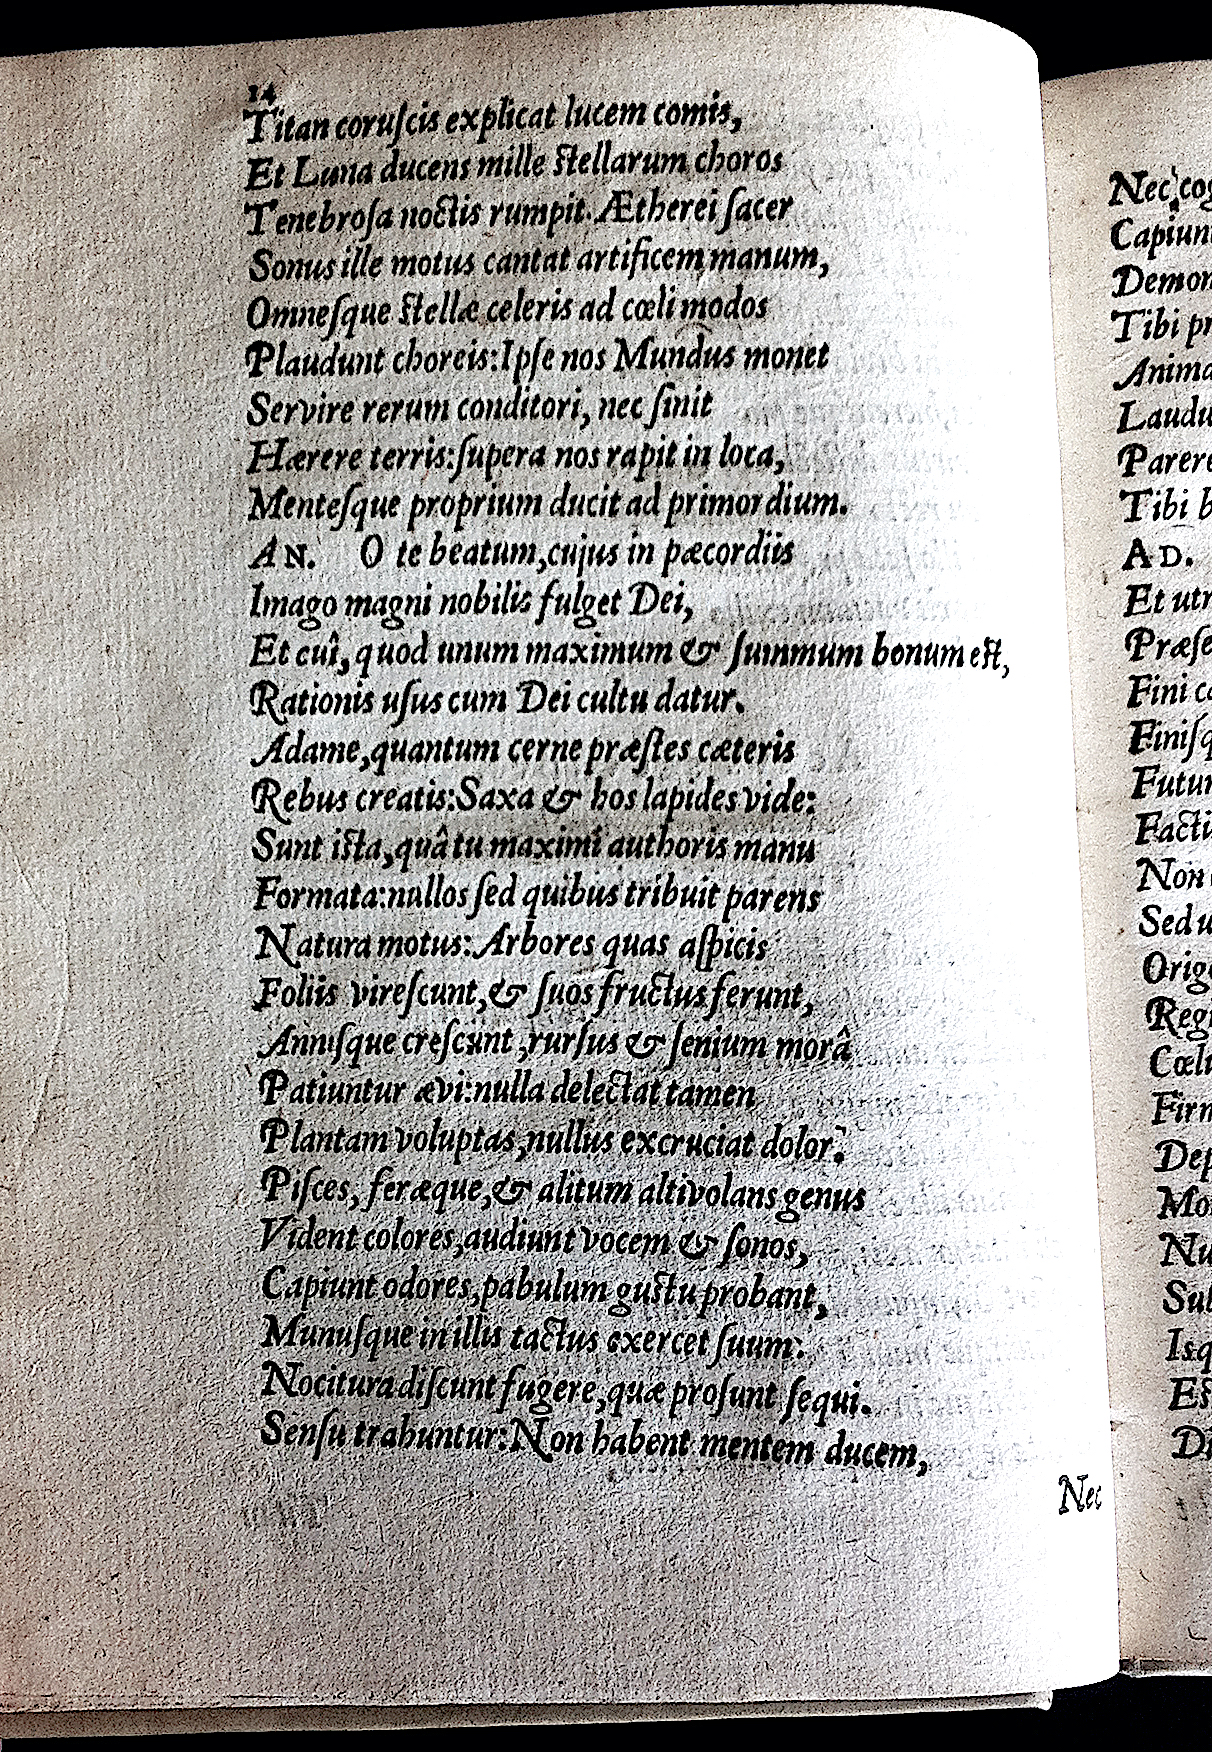 14
Titan coruſcis explicat lucem comis,
Et Luna ducens mille ſtellarum choros
Tenebroſa noctis rumpit. Ætherei ſacer
Sonus ille motus cantat artificem manum,
Omneſque ſtellæ celeris ad cœli modos
Plaudunt choreis: Ipſe nos Mundus monet
Servire rerum conditori, nec ſinit
Hærere terris: ſupera nos rapit in loca,
Menteſque proprium ducit ad primordium.
AN. O te beatum, cujus in pæcordiis
Imago magni nobilis fulget Dei,
Et cuî, quod unum maximum & ſummum bonum eſt,
Rationis uſus cum Dei cultu datur.
Adame, quantum cerne præſtes cæteris
Rebus creatis: Saxa & hos lapides vide:
Sunt iſta, quâ tu maximi authoris manu
Formata: nullos ſed quibus tribuit parens
Natura motus: Arbores quas aſpicis
Foliis vireſcunt, & ſuos fructus ferunt,
Anniſque creſcunt, rurſus & ſenium morâ
Patiuntur ævi: nulla delectat tamen
Plantam voluptas, nullus excruciat dolor.
Piſces, feræque, & alitum altivolans genus
Vident colores, audiunt vocem & ſonos,
Capiunt odores, pabulum guſtu probant,
Munuſque in illis tactus exercet ſuum:
Nocitura diſcunt fugere, quæ proſunt ſequi.
Senſu trahuntur: Non habent mentem ducem,
Nec
Nec
Capiun
Demon
Tibi pr
Anima
Laudu
Parere
Tibi b
AD.
Et utr
Præſe
Fini c
Finiſq
Futur
Factu
Non
Sed u
Orig
Reg
Cœlu
Firm
Dep
Mo
Nu
Sub
Isq
Eſ
Di